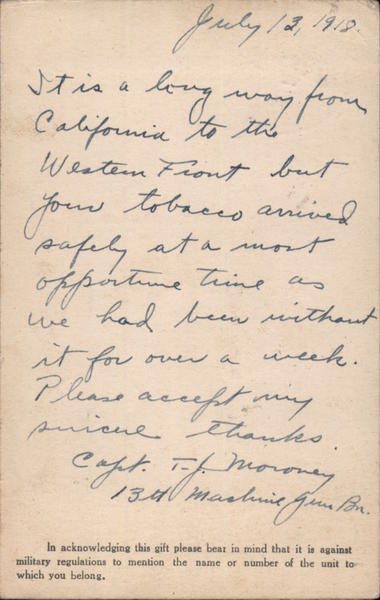 July 13, 1918.
It is a long way from
California to the
Western Front but
your tobacco arrived
safely at a most
opportune time as
we had been without
it for over a week.
Please accept my
sincere thanks.
Capt. T. J. Moroney
13th Machine Gun Bn.
In acknowledging this gift please bear in mind that it is against
military regulations to mention the name or number of the unit to
which you belong.